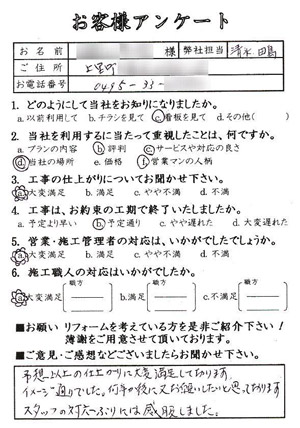 お客様アンケート
お名前 様 弊社担当 清水 田島
ご住所 上里町
お電話番号 0495-33-
1. どのようにして当社をお知りになりましたか。
a.以前利用して b.チラシを見て c.看板を見て d.その他( )
2. 当社を利用するに当たって重視したことは、何ですか。
a.プランの内容 b.評判 c.サービスや対応の良さ
d.当社の場所 e.価格 f.営業マンの人柄
3. 工事の仕上がりについてお聞かせ下さい。
a.大変満足 b.満足 c.やや不満 d.不満
4. 工事は、お約束の工期で終了いたしましたか。
a.予定より早い b.予定通り c.やや遅れた d.大変遅れた
5. 営業・施工管理者の対応は、いかがでしたでしょうか。
a.大変満足 b.満足 c.やや不満 d.不満
6. 施工職人の対応はいかがでしたか。
a.大変満足 [職方 ] b.満足 [職方 ] c.不満 [職方 ]
■お願い リフォームを考えている方を是非ご紹介下さい!
薄謝をご用意させて頂いております。
■ご意見・ご感想などございましたらお聞かせ下さい。
予想以上の仕上がりに大変満足しております。
イメージ通りでした。何年か後に又お願いしたいと思っております
スタッフの対応ぶりには感服しました。